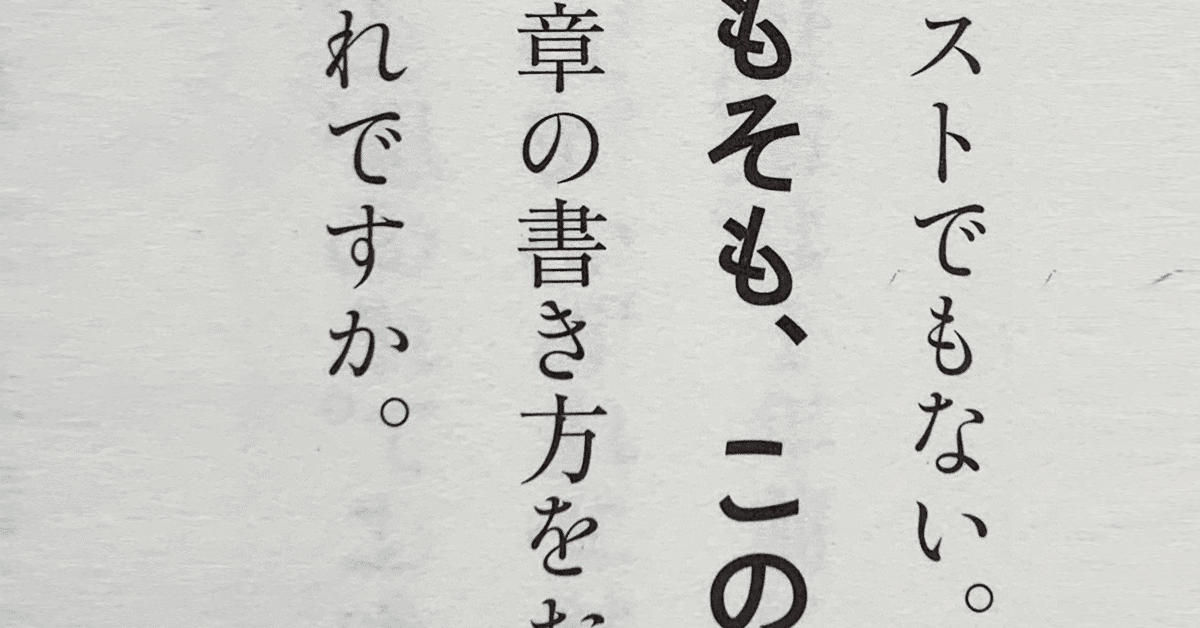 ストでもない。
もそも、この
章の書き方を
れですか。